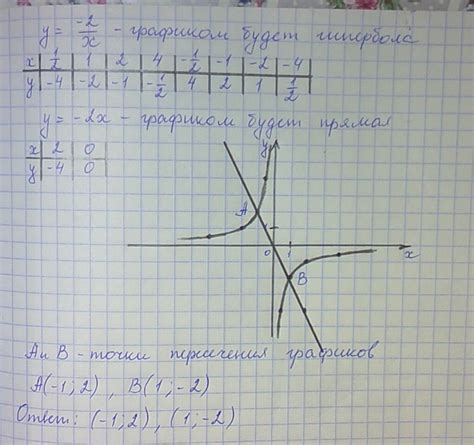 y = -2/x - графиком будет гипербола
x | 1/2 | 1 | 2 | 4 | -1/2 | -1 | -2 | -4
y | -4 | -2 | -1 | -1/2 | 4 | 2 | 1 | 1/2
y = -2x - графиком будет прямая
x | 2 | 0
y | -4 | 0
y
A
1
0 1 x
B
A и B - точки пересечения графиков
A(-1; 2) , B(1; -2)
Ответ: (-1; 2) , (1; -2)